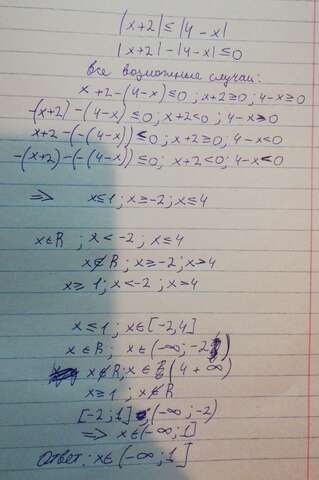 |x+2| ≤ |4-x|
|x+2| - |4-x| ≤ 0
все возможные случаи:
x+2-(4-x) ≤ 0; x+2 ≥ 0; 4-x ≥ 0
-(x+2) -(4-x) ≤ 0; x+2 < 0; 4-x ≥ 0
x+2-(-(4-x)) ≤ 0; x+2 ≥ 0; 4-x < 0
-(x+2)-(-(4-x)) ≤ 0; x+2 < 0; 4-x < 0
⇒ x ≤ 1; x ≥ -2; x ≤ 4
x ∈ R; x < -2; x ≤ 4
x ∉ R; x ≥ -2; x > 4
x ≥ 1; x < -2; x > 4
x ≤ 1; x ∈ [-2,4]
x ∈ R; x ∈ (-∞; -2)
x ∉ R; x ∈ (4 + ∞)
x ≥ 1; x ∉ R
[-2; 1] (-∞; -2)
⇒ x ∈ (-∞; 1]
Ответ: x ∈ (-∞; 1]